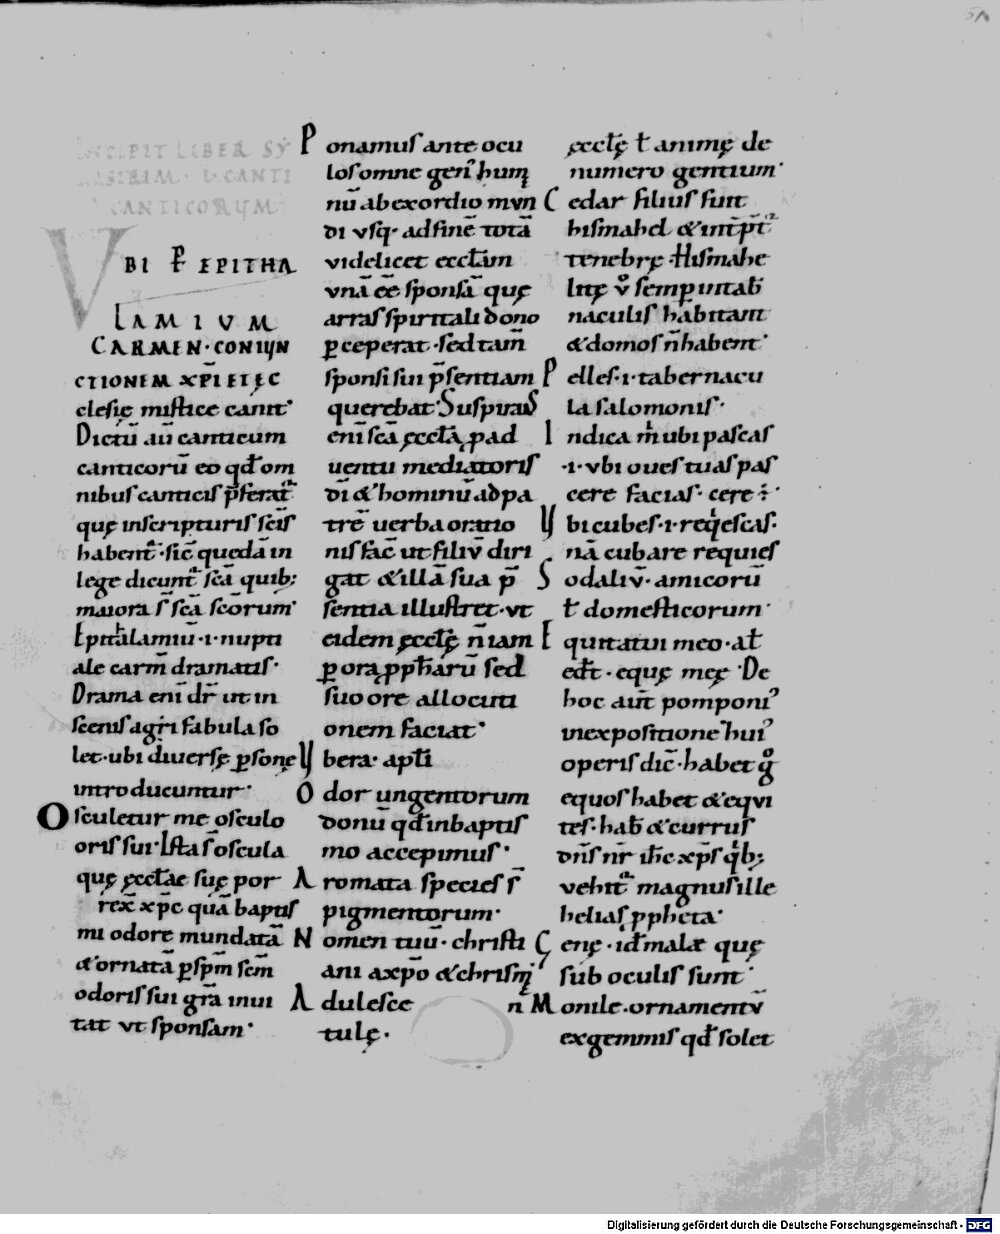 51
INCIPIT LIBER SY
CANTI
CANTICORUM
VBI P̄ EPITHA
LAMIVM
CARMEN·CONIUN
CTIONEM XP̅I ET ĘC
clesię mistice canit·
Dictū aū canticum
canticorū eo qđ om
nibus canticis p̄ferat᷑
quę inscripturis sc̄is
habent᷑·sic̄ quedā in
lege dicunt᷑ sc̄a quib;
maiora s̄ sc̄a sc̄orum·
Epitħalamiū·i·nupti
ale carm̄ dramatis·
Drama eni dr̄ ut in
scenis agi fabula so
let·ubi diuersę ꝑsonę
introducuntur·
Osculetur me osculo
oris sui·Ista s̄ oscula
quę ęccłae suę por
rex̄ xp̄c quā baptis
mi odore mundatā
&ornatā ꝑsp̄m sc̄m
odoris sui gr̄a inui
tat vt sponsam·
Ponamus ante ocu
los omne gen᷒ hum
nū abexordio mvn
di vsq· adfinē totā
videlicet eccłam
vnā eē sponsā quę
arras spiritali dono
ꝑceperat·sed tam̄
sponsi sui p̄sentiam
querebat·Suspirans
eni sc̄a ęccła pad
uentu mediatoris
dī &hominū adpa
trē uerba oratio
nis fac̄ ut filiv̄ diri
gat &illā sua p̄
sentia illustret·vt
eidem ęccłę n̄ iam
ꝑ ora ppħarū sed
suo ore allocuti
onem faciat·
Vbera·apłi
Odor ungentorum
donū qđ inbaptis
mo accepimus·
Aromata species s̄
pigmentorum·
Nomen tuū·christi
ani axp̄o &chrism
Adulesce n̄
tulę·
ęccłę ł animę de
numero gentium·
Cedar filius fuit
hismahel &int̄p̄t᷑
tenebrę·Hismahe
litę v̊ semp intab̄
naculis habitant
&domos n̄ habent·
Pelles·i·tabernacu
la salomonis·
Indica m̍ ubi pascas
·i·vbi oues tuas pas
cere facias·cere·÷·
Vbi cubes·i·reqͥescas·
nā cubare requies
Sodaliv̄·amicorū
ł domesticorum·
Equitatui meo·ał
edt̄·equę meę·De
hoc aut̄ pomponi᷒
inexpositione hui᷒
operis dic̄·habet g̊
equos habet &eqvi
tes·hab̄ &currus
dn̄s nr̄ ih̄c xp̄s qͥb;
vehit᷑ magnus ille
helias ppheta·
Genę·idm̄ malę quę
sub oculis sunt·
Monile·ornamentv̄
exgemmis qđ solet
Digitalisierung gefördert durch die Deutsche Forschungsgemeinschaft - DFG